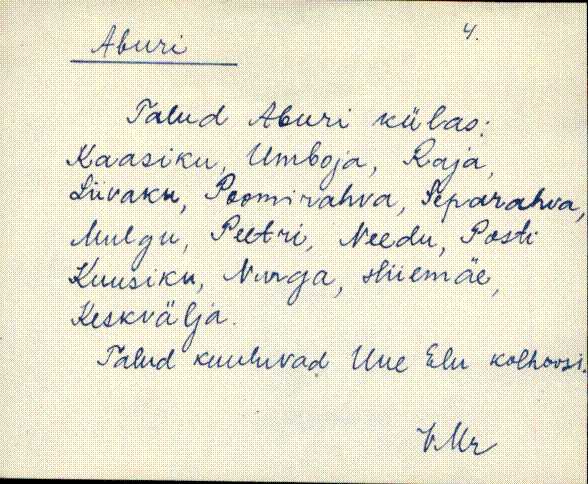 4.
Aburi
Talud Aburi külas:
Kaasiku, Umboja, Raja,
Liivaku, Poomirahva, Separahva,
Mulgu, Peetri, Needu, Posti
Kuusiku, Nurga, Hiiemäe,
Keskvälja.
Talud kuuluvad Uue Elu kolhoosi.
V.Mr